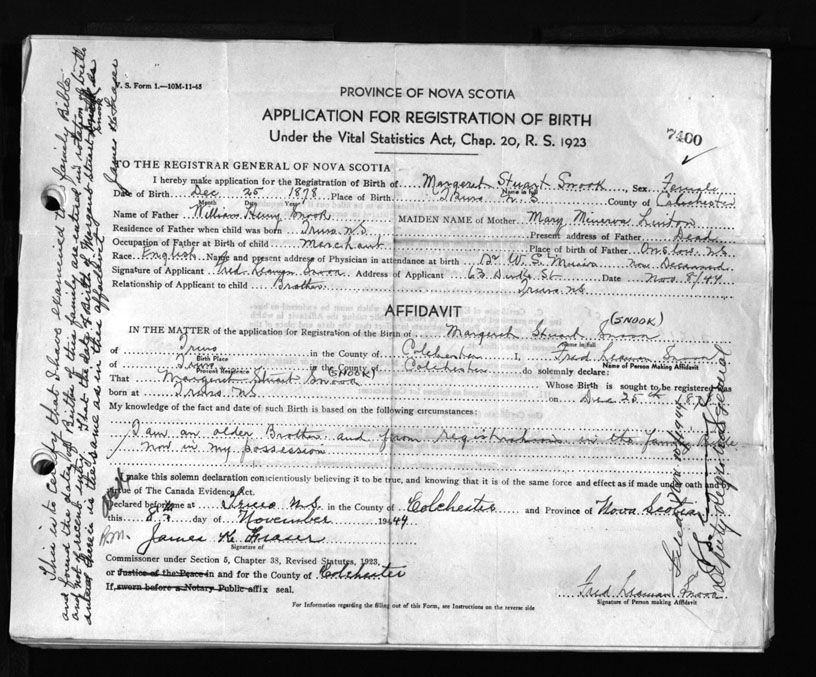 V. S. Form 1.—10M-11-43
PROVINCE OF NOVA SCOTIA
APPLICATION FOR REGISTRATION OF BIRTH
Under the Vital Statistics Act, Chap. 20, R. S. 1923
7400
TO THE REGISTRAR GENERAL OF NOVA SCOTIA
I hereby make application for the Registration of Birth of Margaret Stuart Snook, Sex Female
Name in full
Date of Birth Dec 25 1878 Place of Birth Truro N.S County of Colchester
Month Day Year
Name of Father William Henry Snook MAIDEN NAME of Mother Mary Minerva Linton
Residence of Father when child was born Truro N.S. Present address of Father Dead
Occupation of Father at Birth of child Merchant Place of birth of Father Onslow N.S
Race English Name and present address of Physician in attendance at birth Dr W. S. Now Deceased
Signature of Applicant Fred Leaman Snook Address of Applicant 63 St. Date Nov 8/44
Relationship of Applicant to child Brother Truro N.S
AFFIDAVIT
(SNOOK)
IN THE MATTER of the application for Registration of the Birth of Margaret Stuart Snook
Name in full
of Truro in the County of Colchester I, Fred Leaman Snook
Birth Place Name of Person Making Affidavit
of Truro in the County of Colchester do solemnly declare:
Present Residence (SNOOK)
That Margaret Stuart Snook Whose Birth is sought to be registered was
born at Truro N.S on Dec 25th 1878
My knowledge of the fact and date of such Birth is based on the following circumstances:
I am an older Brother and from registrations in the family Bible
now in my possession
I make this solemn declaration conscientiously believing it to be true, and knowing that it is of the same force and effect as if made under oath and by
virtue of The Canada Evidence Act.
Declared before me at Truro N.S. in the County of Colchester and Province of Nova Scotia
this 8th day of November 1944
James K. Fraser
Signature of
Commissioner under Section 5, Chapter 38, Revised Statutes, 1923,
or Justice of the Peace in and for the County of Colchester
If sworn before a Notary Public affix seal.
Fred Leaman Snook
Signature of Person making Affidavit
For Information regarding the filling out of this Form, see Instructions on the reverse side
This is to certify that I have examined the family Bible
and found the dates of Births of this family are entered in rotation of birth
and not of recent entry. That the date of Birth of Margaret Stuart Snook as
entered there is the same as in this affidavit
James K Fraser
Deputy Registrar General